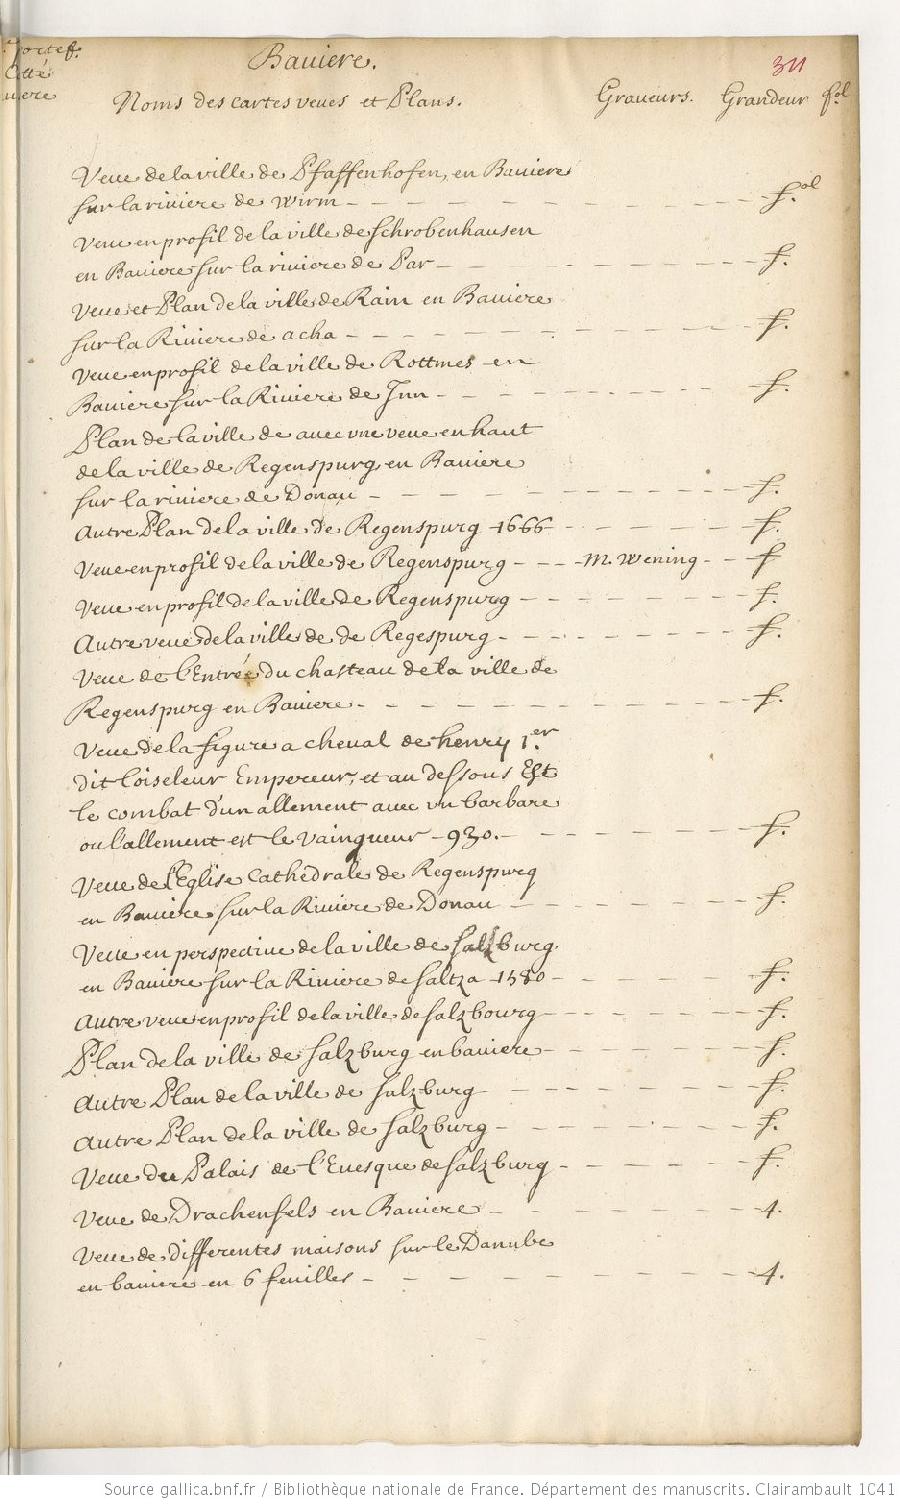 Baviere.
311
Noms des cartes veues et Plans. Graveurs. Grandeur fol
Veue de la ville de Pfaffenhofen, en Baviere
sur la riviere de wirm - f.ol
Veue en profil de la ville de Schrobenhausen
en Baviere sur la riviere de Par - f.
Veue et Plan de la ville de Rain en Baviere
sur la Riviere de acha - f.
Veue en profil de la ville de Rottmes en
Baviere sur la Riviere de Inn - f.
Plan de la ville de avec vne veue en haut
de la ville de Regenspurg en Baviere
sur la riviere de Donau - f.
Autre Plan de la ville de Regenspurg - 1666 - f.
Veue en profil de la ville de Regenspurg - M. Wening - f
Veue en profil de la ville de Regenspurg - f.
Autre veue de la ville de de Regespurg - f.
Veue de l'Entrée du chasteau de la ville de
Regenspurg en Baviere - f.
Veue de la figure a cheval de henry 1.er
dit l'oiseleur Empereur, et au dessous Est
le combat d'un allement avec vn barbare
ou l'allement est le vainqueur - 930. - f.
Veue de l'Eglise Cathedrale de Regenspurg
en Baviere sur la Riviere de Donau - f.
Veue en perspective de la ville de Salzburg.
en Baviere sur la Riviere de Saltza - 1580 - f.
Autre veue en profil de la ville de Salzbourg - f.
Plan de la ville de Salzburg en baviere - f.
Autre Plan de la ville de Salzburg - f.
Autre Plan de la ville de Salzburg - f.
Veue du Palais de l'Evesque de Salzburg - f.
Veue de Drachenfels en Baviere - 4.
Veue de differentes maisons sur le Danube
en baviere en 6 feuilles - 4.
Source gallica.bnf.fr / Bibliothèque nationale de France. Département des manuscrits. Clairambault 1041